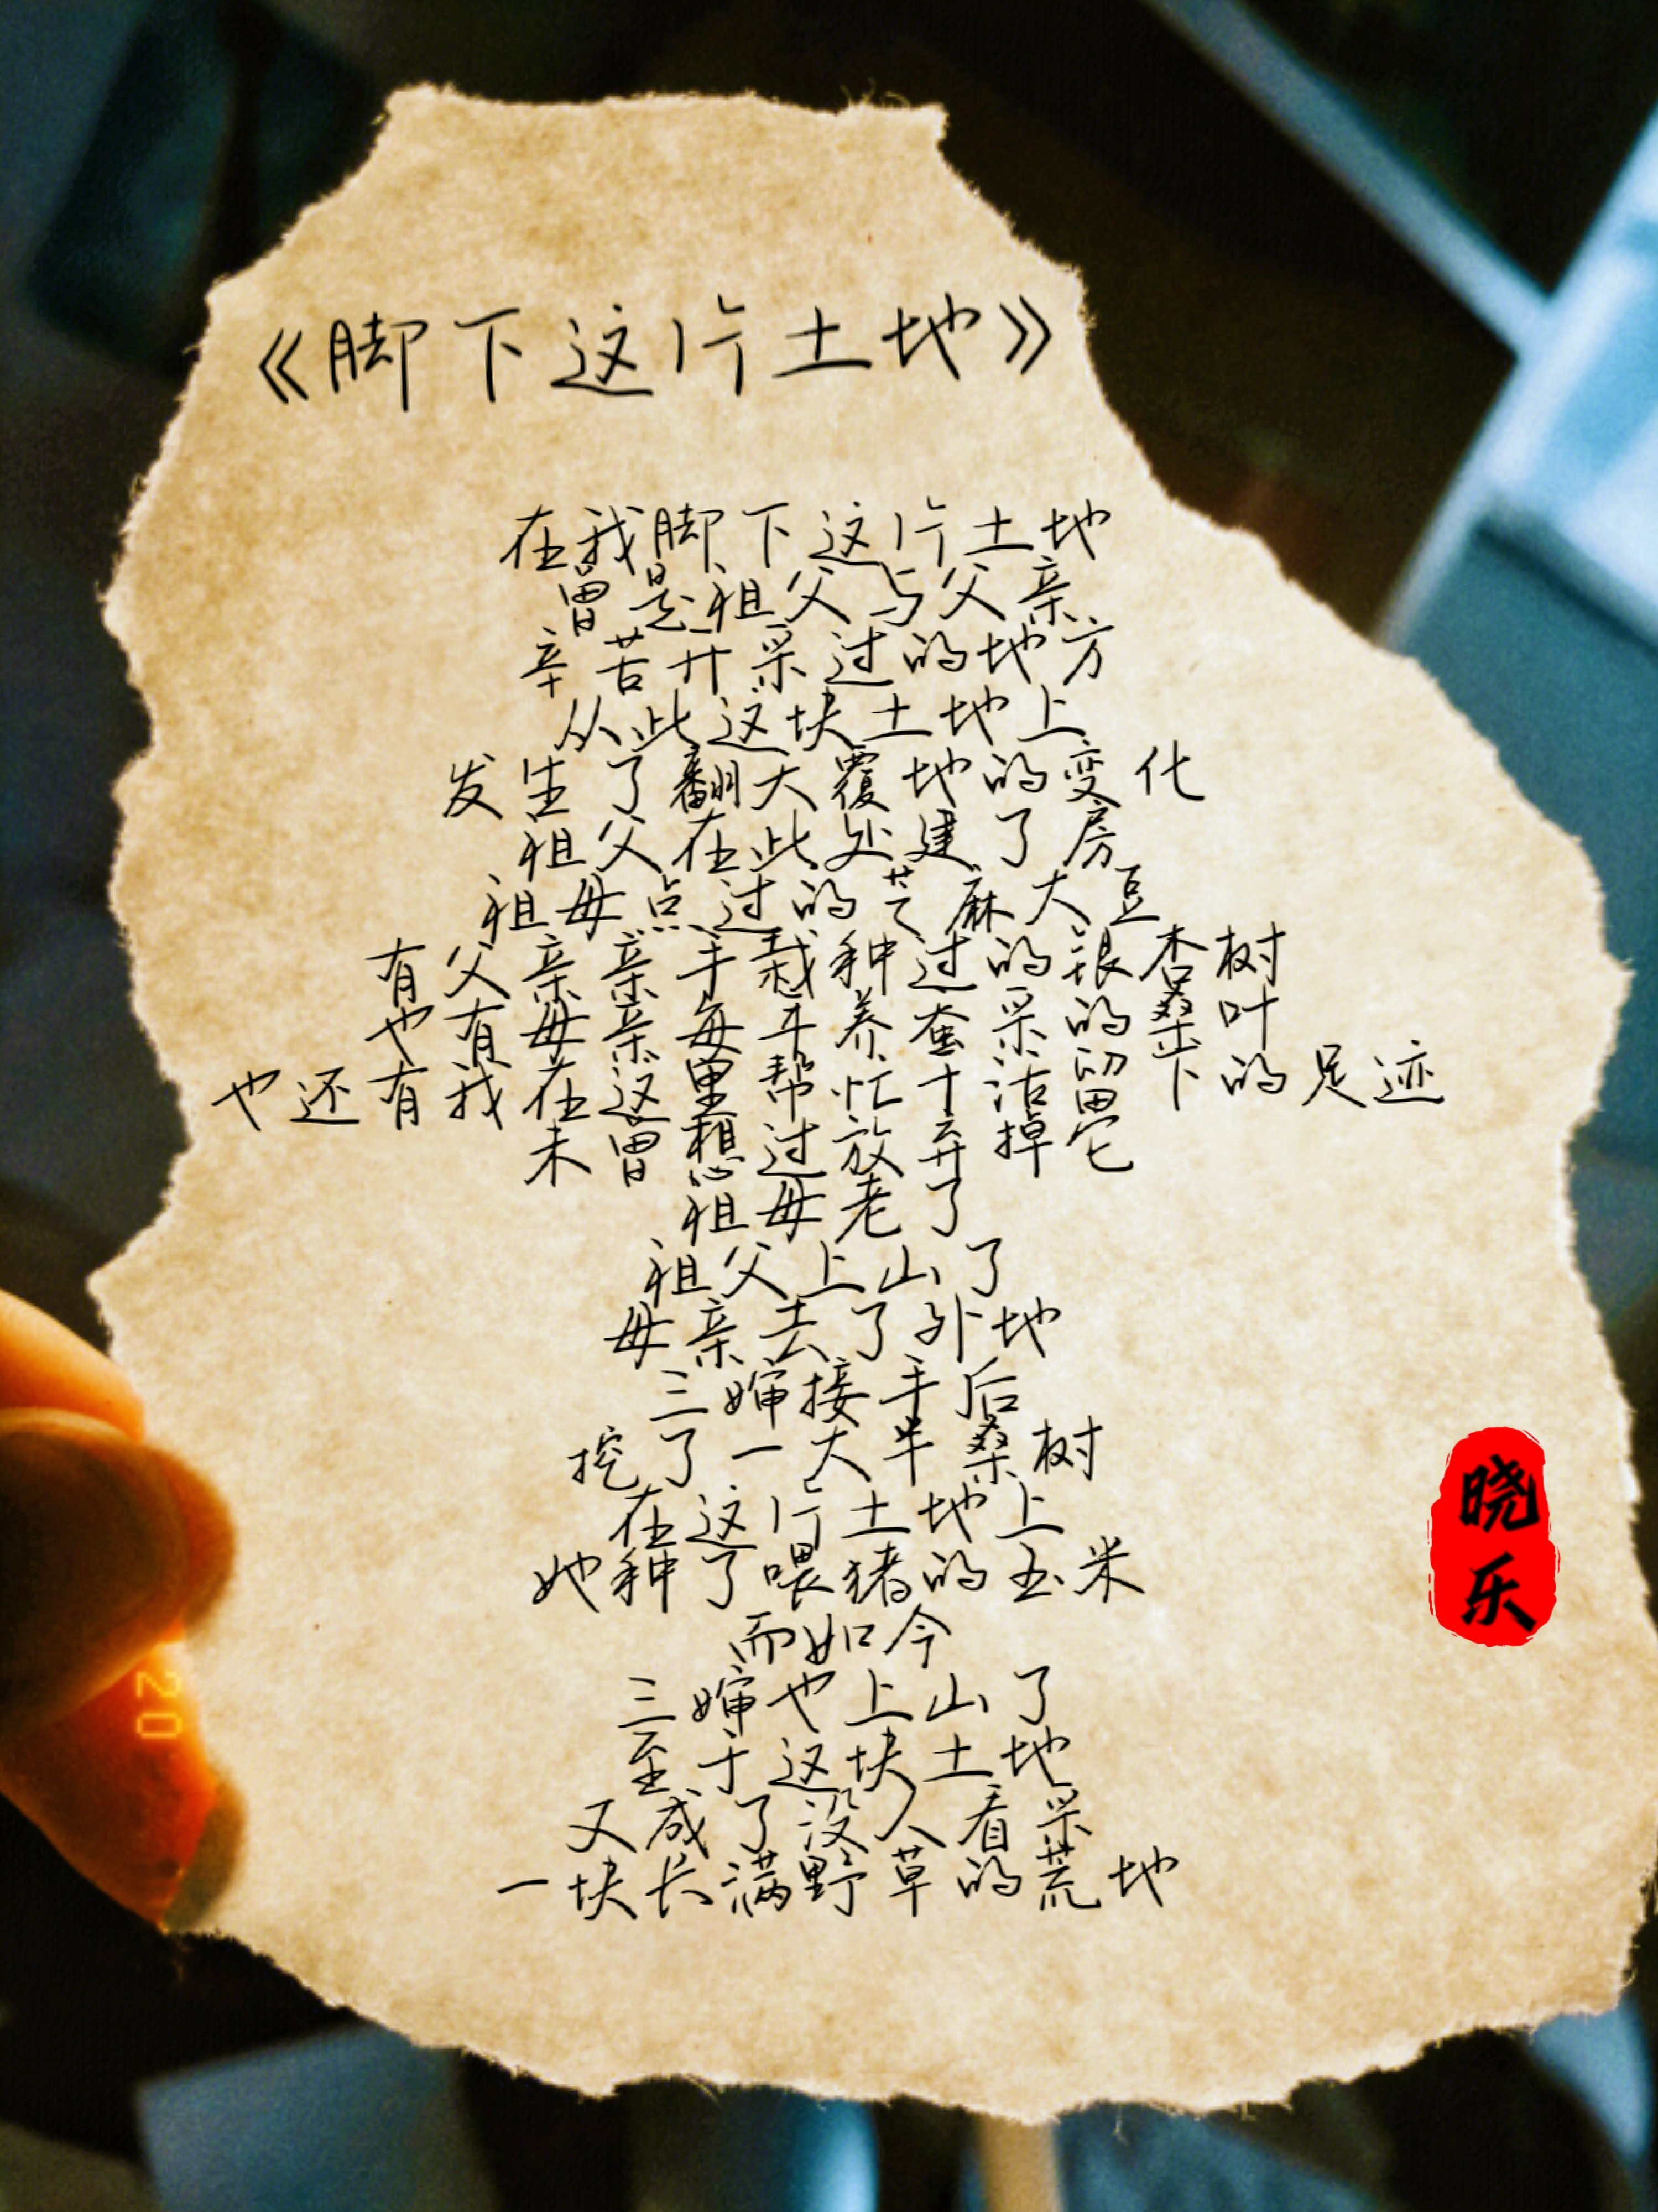 《脚下这片土地》
在我脚下这片土地
曾是祖父与父亲
辛苦开采过的地方
从此这块土地上
发生了翻天覆地的变化
祖父在此处建了房
祖母点过的芝麻大豆
有父亲亲手栽种过的银杏树
也有母亲每年养蚕采的桑叶
也还有我在这里帮忙干活留下的足迹
未曾想过放弃掉它
祖母老了
祖父上山了
母亲去了外地
三婶接手后
挖了一大半桑树
在这片土地上
她种了喂猪的玉米
而如今
三婶也上山了
至于这块土地
又成了没人看采
一块长满野草的荒地
晓乐
20